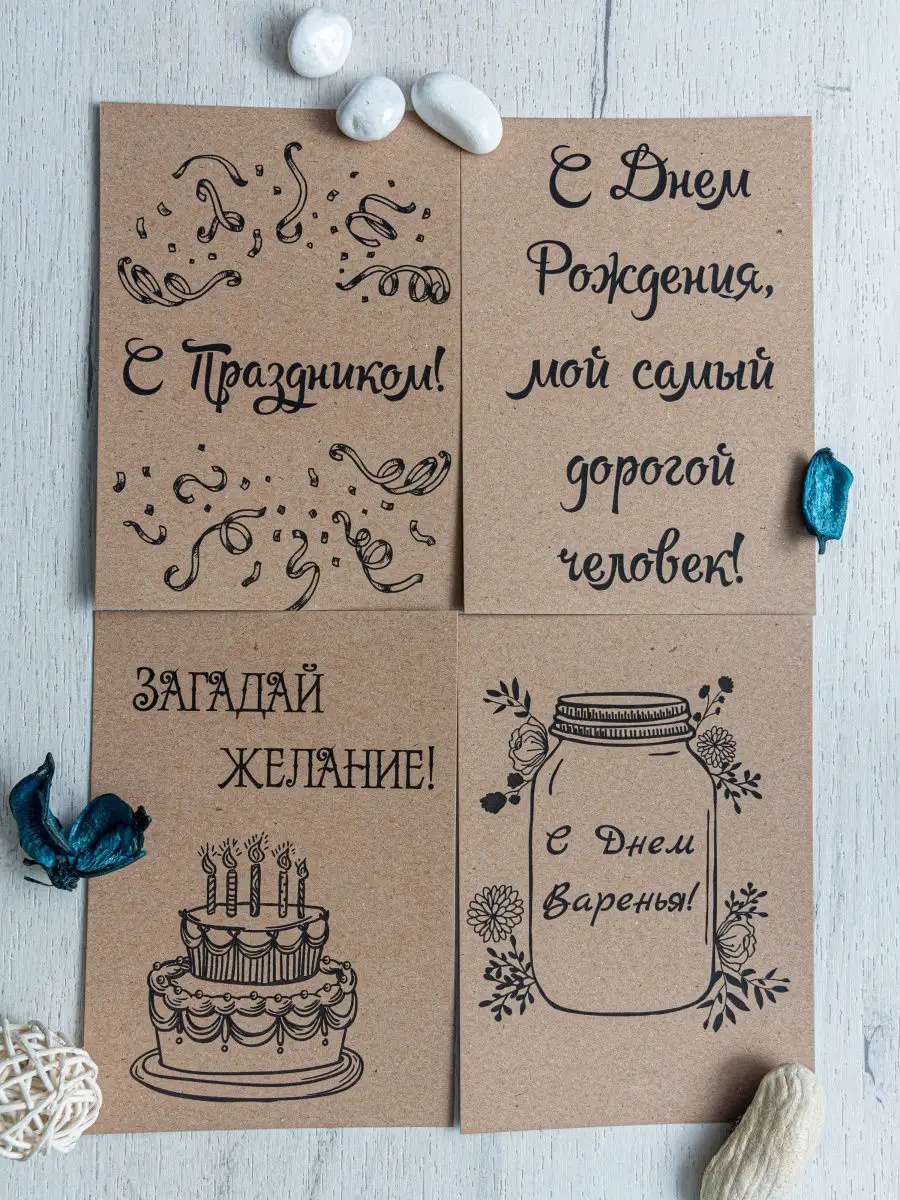 С Праздником!
С Днем
Рождения,
мой самый
дорогой
человек!
ЗАГАДАЙ
ЖЕЛАНИЕ!
С Днем
Варенья!